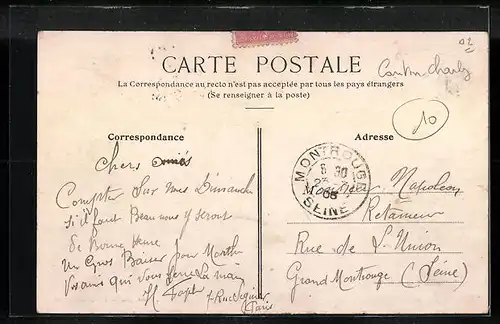 CARTE POSTALE
La Correspondance au recto n'est pas acceptée par tous les pays étrangers
(Se renseigner à la poste)
Correspondance
Chers amis
Compter sur nous Dimanche
s'il fait Beau nous y serons
de bonne heure
un Gros Baiser pour
vos amis qui vous serre la main
7 Rue
Paris
10
Adresse
MONTROUGE
8 30
SEINE
Monsieur Napoléon
Retameur
Rue de L'Union
Grand Montrouge (Seine)